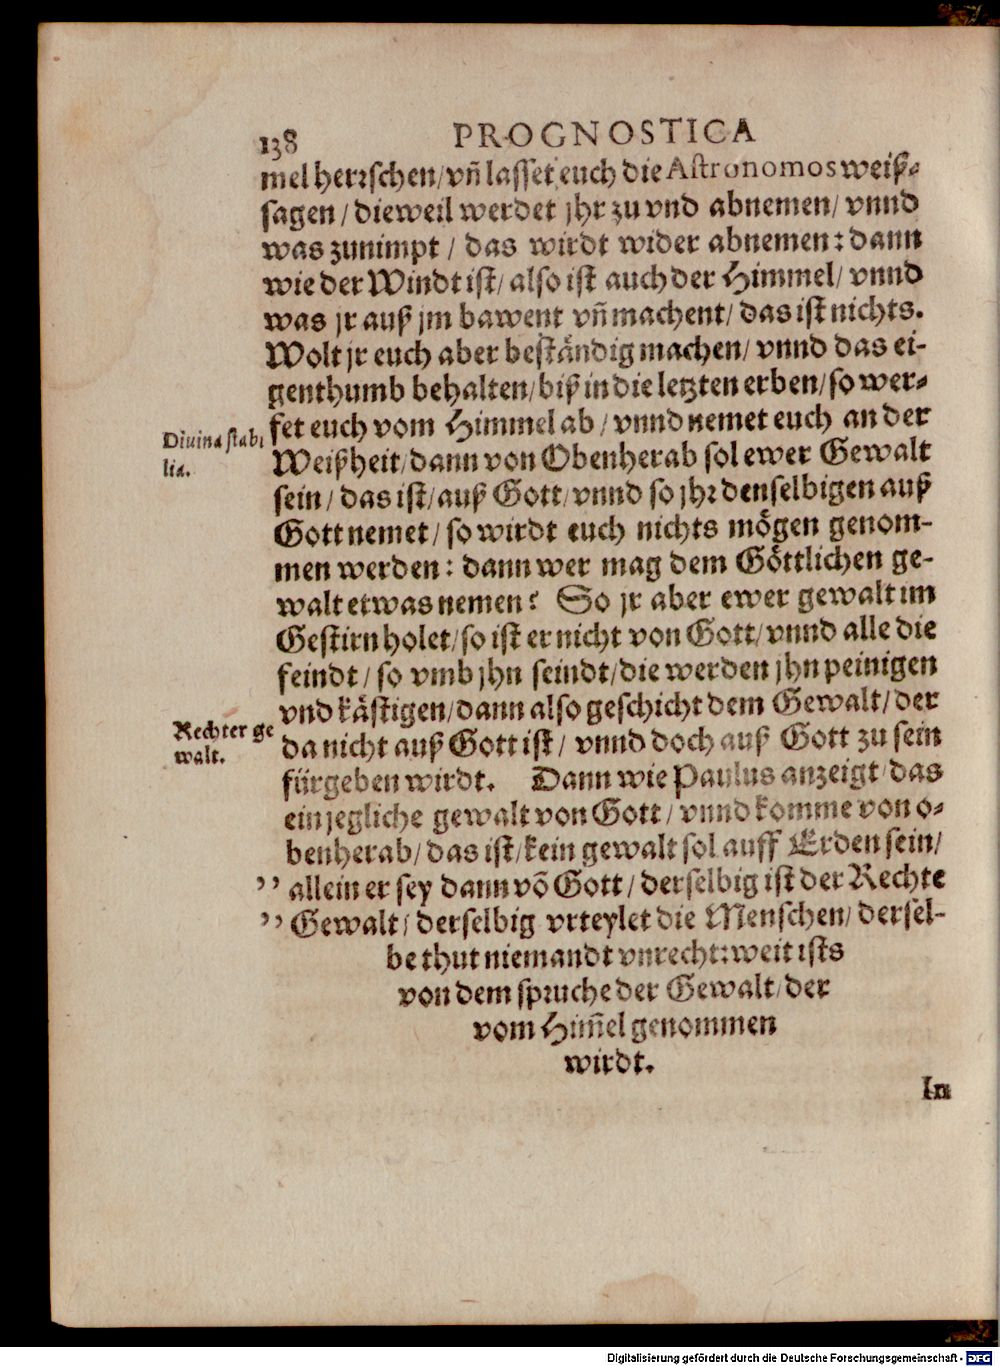 138 PROGNOSTICA
mel herrschen/ vñ lasset euch die Astronomos weiß-
sagen / dieweil werdet jhr zu vnd abnemen/ vnnd
was zunimpt / das wirdt wider abnemen: dann
wie der Windt ist/ also ist auch der Himmel/ vnnd
was jr auß jm bawent vñ machent/ das ist nichts.
Wolt jr euch aber beständig machen/ vnnd das ei-
genthumb behalten/ biß in die letzten erben/ so wer-
Diuina stabi
lia.
fet euch vom Himmel ab / vnnd nemet euch an der
Weißheit/ dann von Obenherab sol ewer Gewalt
sein / das ist/ auß Gott/ vnnd so jhr denselbigen auß
Gott nemet/ so wirdt euch nichts mögen genom-
men werden: dann wer mag dem Göttlichen ge-
walt etwas nemen? So jr aber ewer gewalt im
Gestirn holet/ so ist er nicht von Gott/ vnnd alle die
feindt / so vmb jhn seindt/ die werden jhn peinigen
vnd kästigen/ dann also geschicht dem Gewalt/ der
Rechter ge
walt.
da nicht auß Gott ist / vnnd doch auß Gott zu sein
fürgeben wirdt. Dann wie Paulus anzeigt/ das
ein jegliche gewalt von Gott / vnnd komme von o-
benherab/ das ist/ kein gewalt sol auff Erden sein/
,, allein er sey dann võ Gott / derselbig ist der Rechte
,, Gewalt/ derselbig vrteylet die Menschen/ dersel-
be thut niemandt vnrecht: weit ists
von dem spruche der Gewalt/ der
vom Him̃el genommen
wirdt.
In
Digitalisierung gefördert durch die Deutsche Forschungsgemeinschaft - DFG